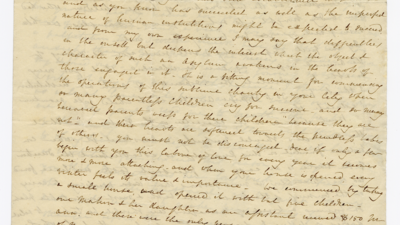 and as you know has succeeded as well as the imperfect
nature of human institutions might be expected to succeed
and from my own experience I may say that difficulties
in the outset but deepens the interest which the object &
character of such an Asylum awakens in the hearts of
those engaged in it. It is a fitting moment for commencing
the operations of this sublime charity in your city, when
so many parentless children cry for succour and so many
bereaved parents weep for their children because they are
not - and their hearts are softened towards the
of others. you must not be discouraged, even if only a few
begin with you this labour of love for every year it becomes
more & more attaching, and when your house is opened every
winter feels its value & importance. We commenced by taking
a small house, and opened it with but five children.
one matron & her daughter, as an assistant received $150 per
ann, and these were the only